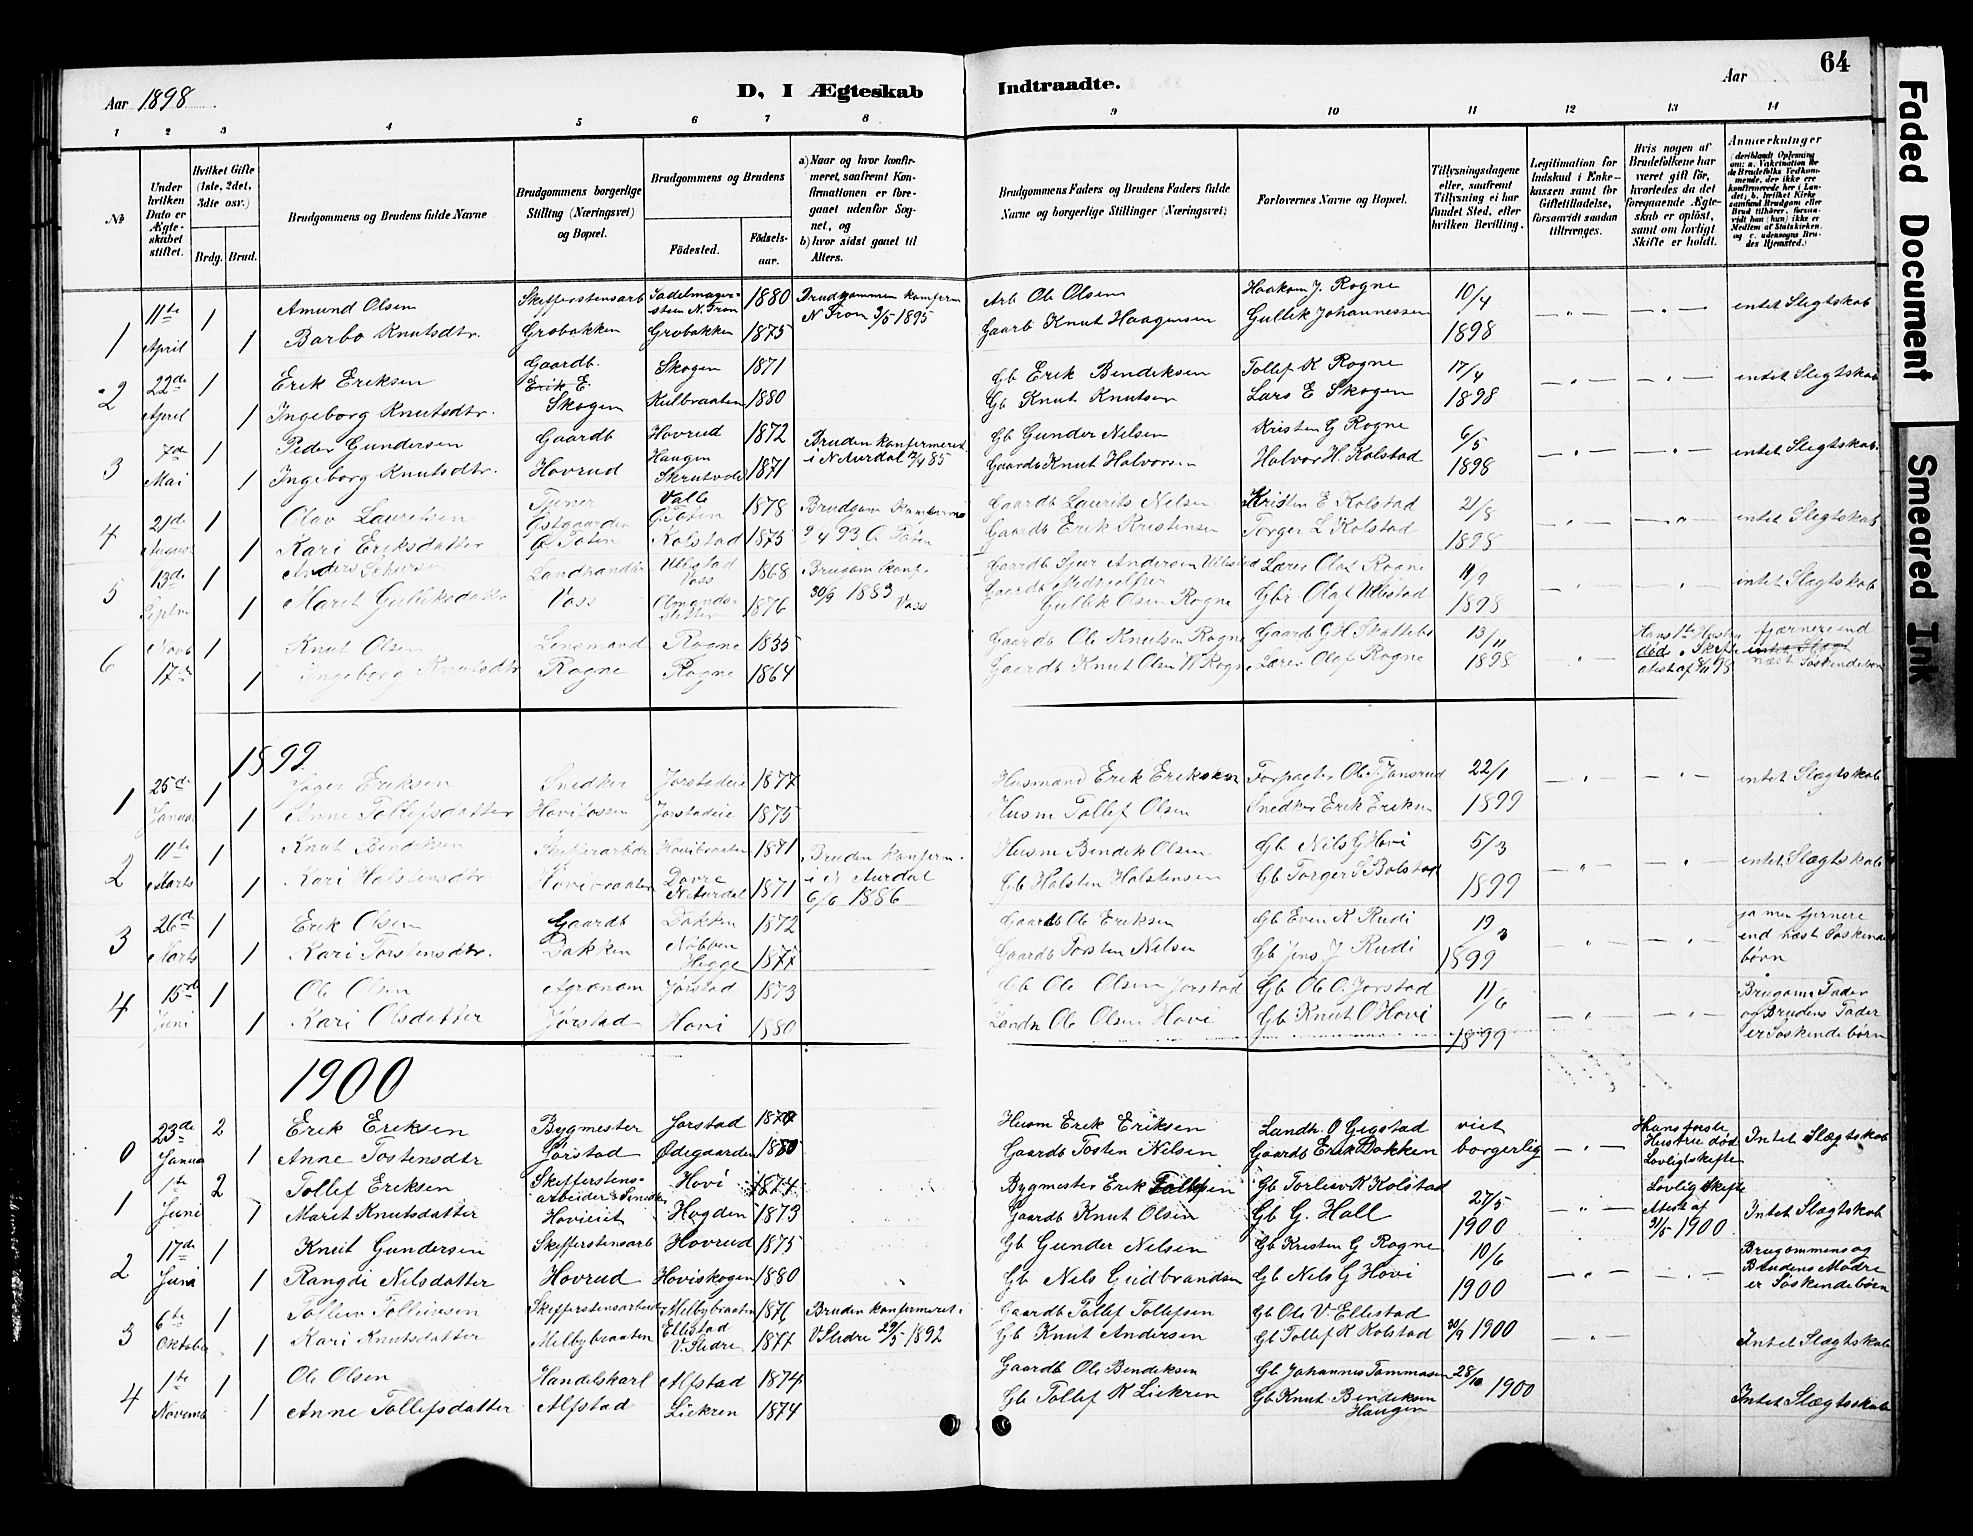 64
Aar 1898
D, I Ægteskab Indtraadte.
Aar
1 2 3 4 5 6 7 8 9 10 11 12 13 14
No
Under hvilken Dato er Ægteskabet stiftet.
Hvilket Gifte (1ste, 2det, 3die osv.)
Brdg. Brud.
Brudgommens og Brudens fulde Navne
Brudgommens borgerlige Stilling (Næringsvei) og Bopæl.
Brudgommens og Brudens
Fødested. Fødselsaar.
a) Naar og hvor konfirmeret, saafremt Konfirmationen er foregaaet udenfor Sognet, og b) hvor sidst gaaet til Alters.
Brudgommens Faders og Brudens Faders fulde Navne og borgerlige Stillinger (Næringsvei)
Forlovernes Navne og Bopæl.
Tillysningsdagene eller, saafremt Tillysning ei har fundet Sted, efter hvilken Bevilling.
Legitimation for Indskud i Enkekassen samt for Giftetilladelse, forsaavidt saadan tiltrænges.
Hvis nogen af Brudefolkene har været gift før, hvorledes da det foregaaende Ægteskab er opløst, samt om lovligt Skifte er holdt.
Anmærkninger
1 11te April 1 Amund Olsen Skifferstensarb Sadelmagerstuen N. Fron 1880 Brudgommen konfirm N Fron 3/5 1895 Arb Ole Olsen Haakon J. Rogne 10/4 intet Slegtskab
1 Barbo Knutsdtr. Grobakken Grobakken 1875 Gaarb Knut Haagensen Gullik Johannessen 1898
2 22de April 1 Erik Eriksen Gaardb. Erik E. Skogen 1871 Gb Erik Bendiksen Tollef K Rogne 17/4 intet Slegtskab
1 Ingeborg Knutsdtr. Skogen Kulbraaten 1880 Gb Knut Knutsen Lars E Skogen 1898
3 7de Mai 1 Peder Gundersen Gaardb Hovrud 1872 Bruden konfirmeret i N Aurdal 12/4 85 Gb Gunder Nilsen Kristen G Rogne 6/5 intet Slegtskab.
1 Ingeborg Knutsdtr. Hovrud Haugen Skrutvold 1871 Gaardb Knut Halvorsen Halvor H. Kolstad 1898
4 21de August 1 Olav Lauritsen Tjener Østgaarden Ø Toten Valle Ø. Toten 1878 Brudgom Konfirm 9/4 93 Ø Toten Gaardb Laurits Nelsen Kristen E Kolstad 21/8 intet Slegtskab
1 Kari Eriksdatter Kolstad 1875 Gaardb Erik Kristensen Torger L Kolstad 1898
5 13de Septm 1 Anders Landhandler Ullestad Voss 1868 Brugom konf. 30/9 1883 Voss Gaardb Sjur Andersen Ullestad Lærer Olaf Rogne 11/9 intet Slegtskab
1 Marit Gulliksdatter Voss 1876 Gaardb Gullik Olsen Rogne Gbr Olaf Ullestad 1898
6 Novb 17de 1 Knut Olsen Lensmand Rogne 1835 Gaardb Ole Knutsen Rogne Gaardb G H Skattebo 13/11 Hans 1te Hustru død. Skifte attest af 98 fjærnere end intet Slægt næst Søskendebørn
1 Ingeborg Knutsdtr Rogne Rogne 1864 Gaardb Knut Olsen Rogne Lærer Olaf Rogne 1898
1899
1 25de Januar 1 Eriksen Snedker Jorstadeie 1877 Husmand Erik Eriksen Forpagter Ole T Jansrud 22/1 intet Slægtskab
1 Anne Tollefsdatter Jorstadeie 1875 Husm Tollef Olsen Snedker Erik Eriksen 1899
2 11te Marts 1 Knut Bendiksen Skiferarbeider Hovibraaten 1871 Bruden Konfirm. i N Aurdal 6/6 1886 Husm Bendik Olsen Gb Nils G Hovi 5/3 intet Slægtskab
1 Kari Halstensdtr Hovibraaten Dovre N. Aurdal 1871 Gb Halsten Halstensen Gb Torger S Bolstad 1899
3 26de Marts 1 Erik Olsen Gaardb Dokken 1872 Gaardb Ole Eriksen Gb Even K Rudi 19/3 ja men fjernere end næst Søskendebørn
1 Kari Torstensdtr. Dokken Nøbben Hegge 1877 Gaardb Torsten Nilsen Gb Jens J Rudi 1899
4 15de Juni 1 Ole Olsen Agronom Jørstad 1873 Gb Ole Olsen Jorstad Gb Ole O. Jorstad 11/6 Brugoms Fader og Brudens Fader er Søskendebørn
1 Kari Olsdatter Jørstad Hovi 1880 Landh Ole Olsen Hovi Gb Knut O Hovi 1899
1900
0 23de Januar 2 Erik Eriksen Bygmester Jorstad 1870 Husm Erik Eriksen Landh. O Gigstad viet borgerlig Hans første Hustrue død Lovligt skifte Intet Slægtskab
1 Anne Tostensdtr Jørstad Ødegaarden 1880 Gaardb Tosten Nilsen Gaardb Erik Dokken
1 1te Juni 2 Tollef Eriksen Skifferstensarbeider & Smed Hovi 1874 Bygmester Erik Gb Torleiv K Kolstad 27/5 Lovlig Skifte Attest af 31/5 1900 Intet Slægtskab
1 Marit Knutsdatter Hovieiet Hogden 1873 Gaardb Knut Olsen Gb G. Hall 1900
2 17de Juni 1 Knut Gundersen Skifferstensarb Hovrud 1875 Gb Gunder Nilsen Gb Kristen G Rogne 10/6 Brugommens og Brudens Modre er Søskendebørn
1 Rangdi Nilsdatter Hovrud Hoviskogen 1880 Gb Nels Gudbrandsen Gb Nels G Hovi 1900
3 6te Oktober 1 Skifferstensarbeider Melbybraaten 1876 Bruden konfirmeret i V Slidre 29/5 1892 Gaardb Tollef Tollefsen Gb Ole V Ellestad 30/9 1900 Intet Slægtskab
1 Kari Knutsdatter Melbybraaten Ellestad V. Slidre 1877 Gb Knut Andersen Gb Tollef K Kolstad
4 1te Novemb 1 Ole Olsen Handelskarl Alfstad 1874 Gaardb Ole Bendiksen Gb Johannes Tommasen 28/10 1900 Intet Slægtsskab
1 Anne Tollefsdatter Alfstad Liekren 1874 Gb Tollef K Liekren Gb Knut Bendiksen Haugen
Faded Document
Smeared Ink